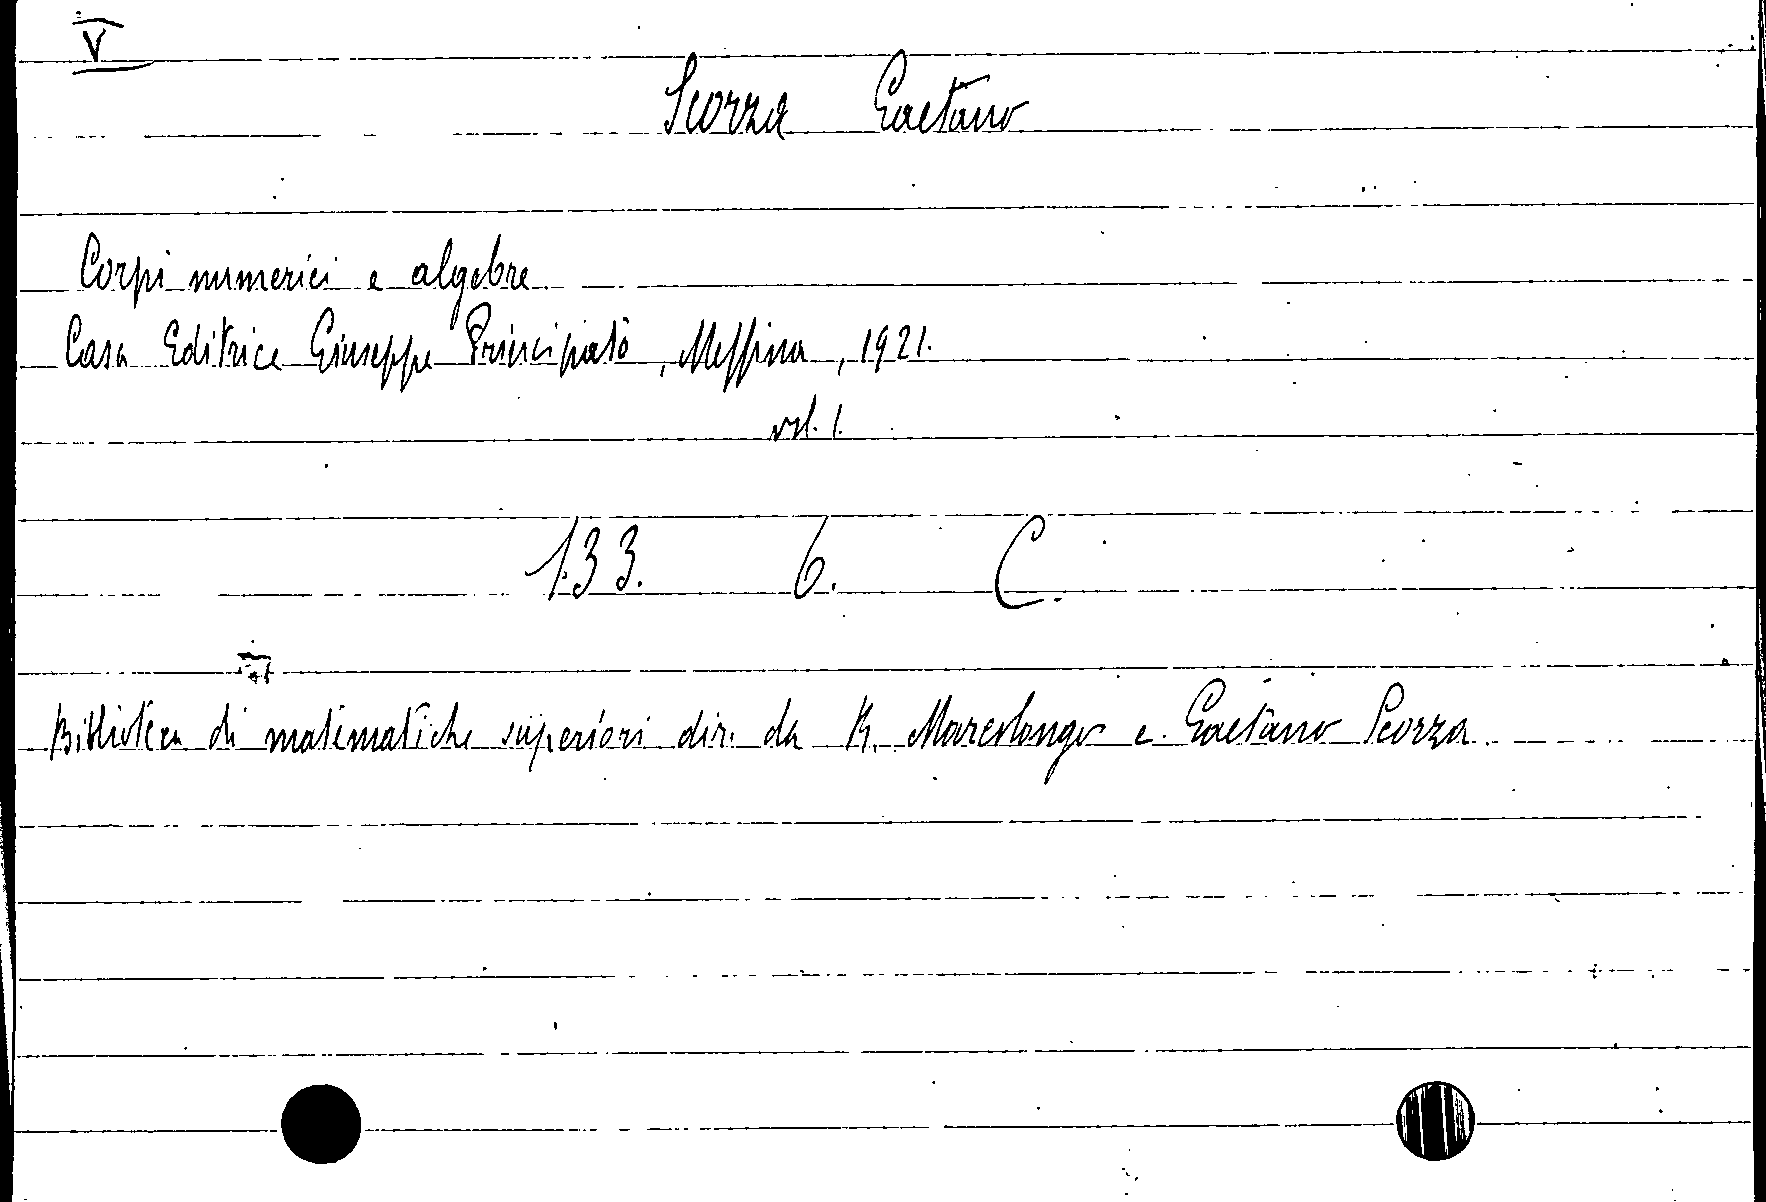 V
Scorza Gaetano
Corpi numerici e algebre
Casa Editrice Giuseppe Principato, Messina, 1921.
vol. 1.
133. 6. C.
Biblioteca di matematiche superiori dir. da R. Marcolongo e Gaetano Scorza